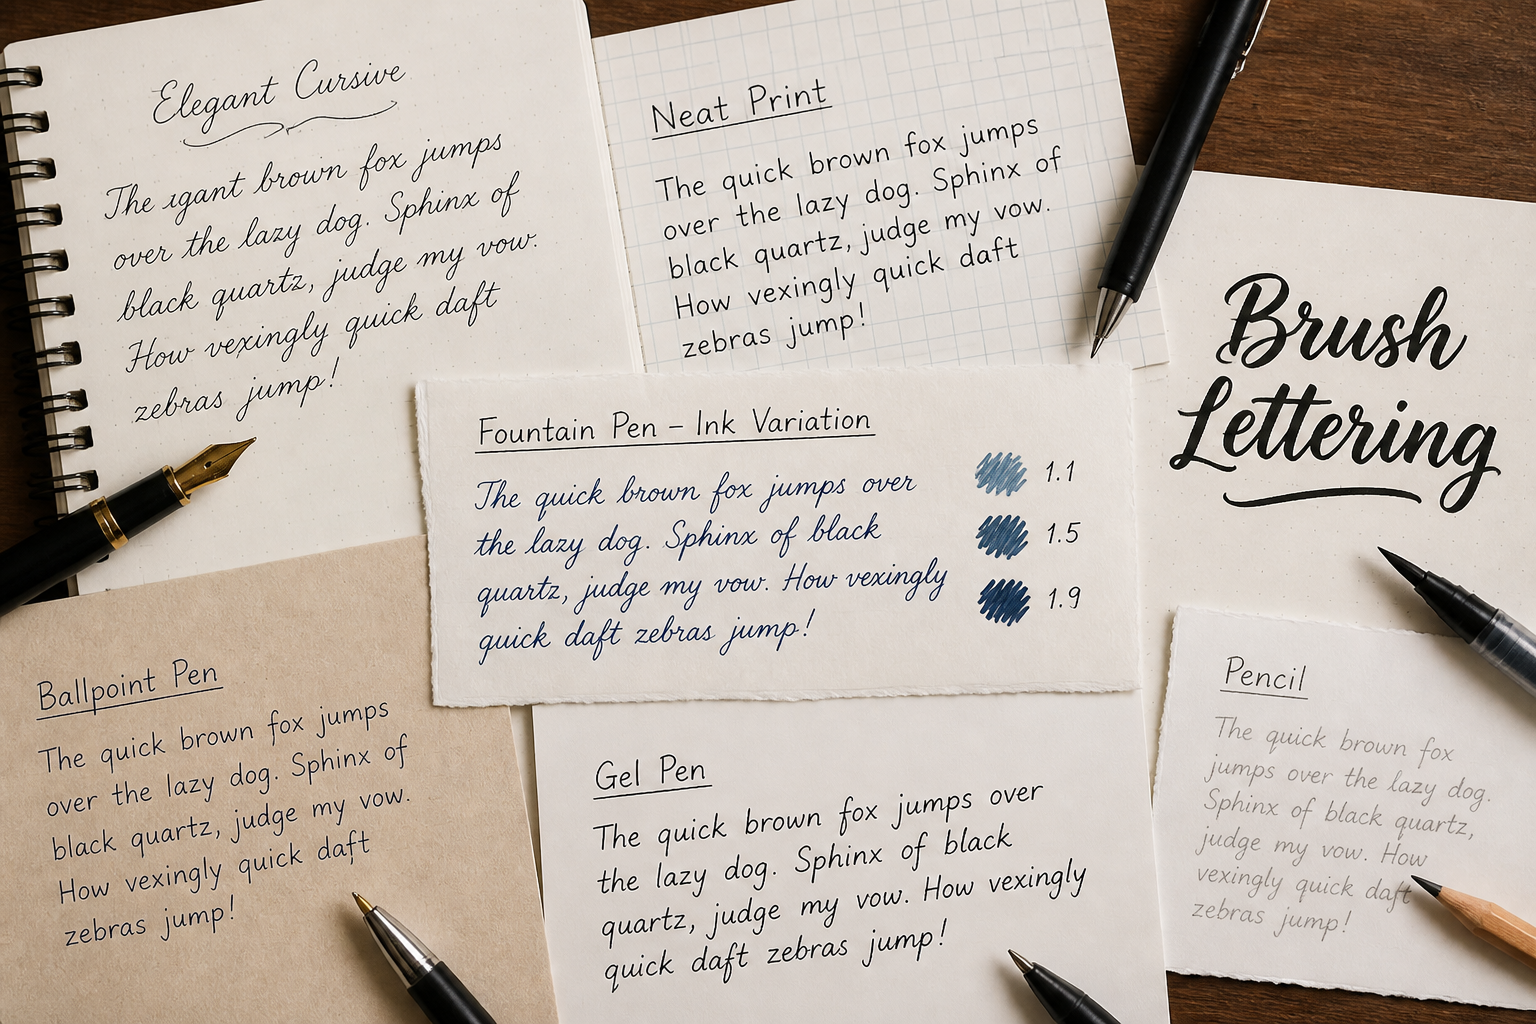 Elegant Cursive
The ıgant brown fox jumps
over the lazy dog. Sphinx of
black quartz, judge my vow.
How vexingly quick daft
zebras jump!
Neat Print
The quick brown fox jumps
over the lazy dog. Sphinx of
black quartz, judge my vow.
How vexingly quick daft
zebras jump!
Brush
Lettering
Fountain Pen – Ink Variation
The quick brown fox jumps over
the lazy dog. Sphinx of black
quartz, judge my vow. How vexingly
quick daft zebras jump!
1.1
1.5
1.9
Ballpoint Pen
The quick brown fox jumps
over the lazy dog. Sphinx of
black quartz, judge my vow.
How vexingly quick daft
zebras jump!
Gel Pen
The quick brown fox jumps over
the lazy dog. Sphinx of black
quartz, judge my vow. How vexingly
quick daft zebras jump!
Pencil
The quick brown fox
jumps over the lazy dog.
Sphinx of black quartz,
judge my vow. How
vexingly quick daft
zebras jump!